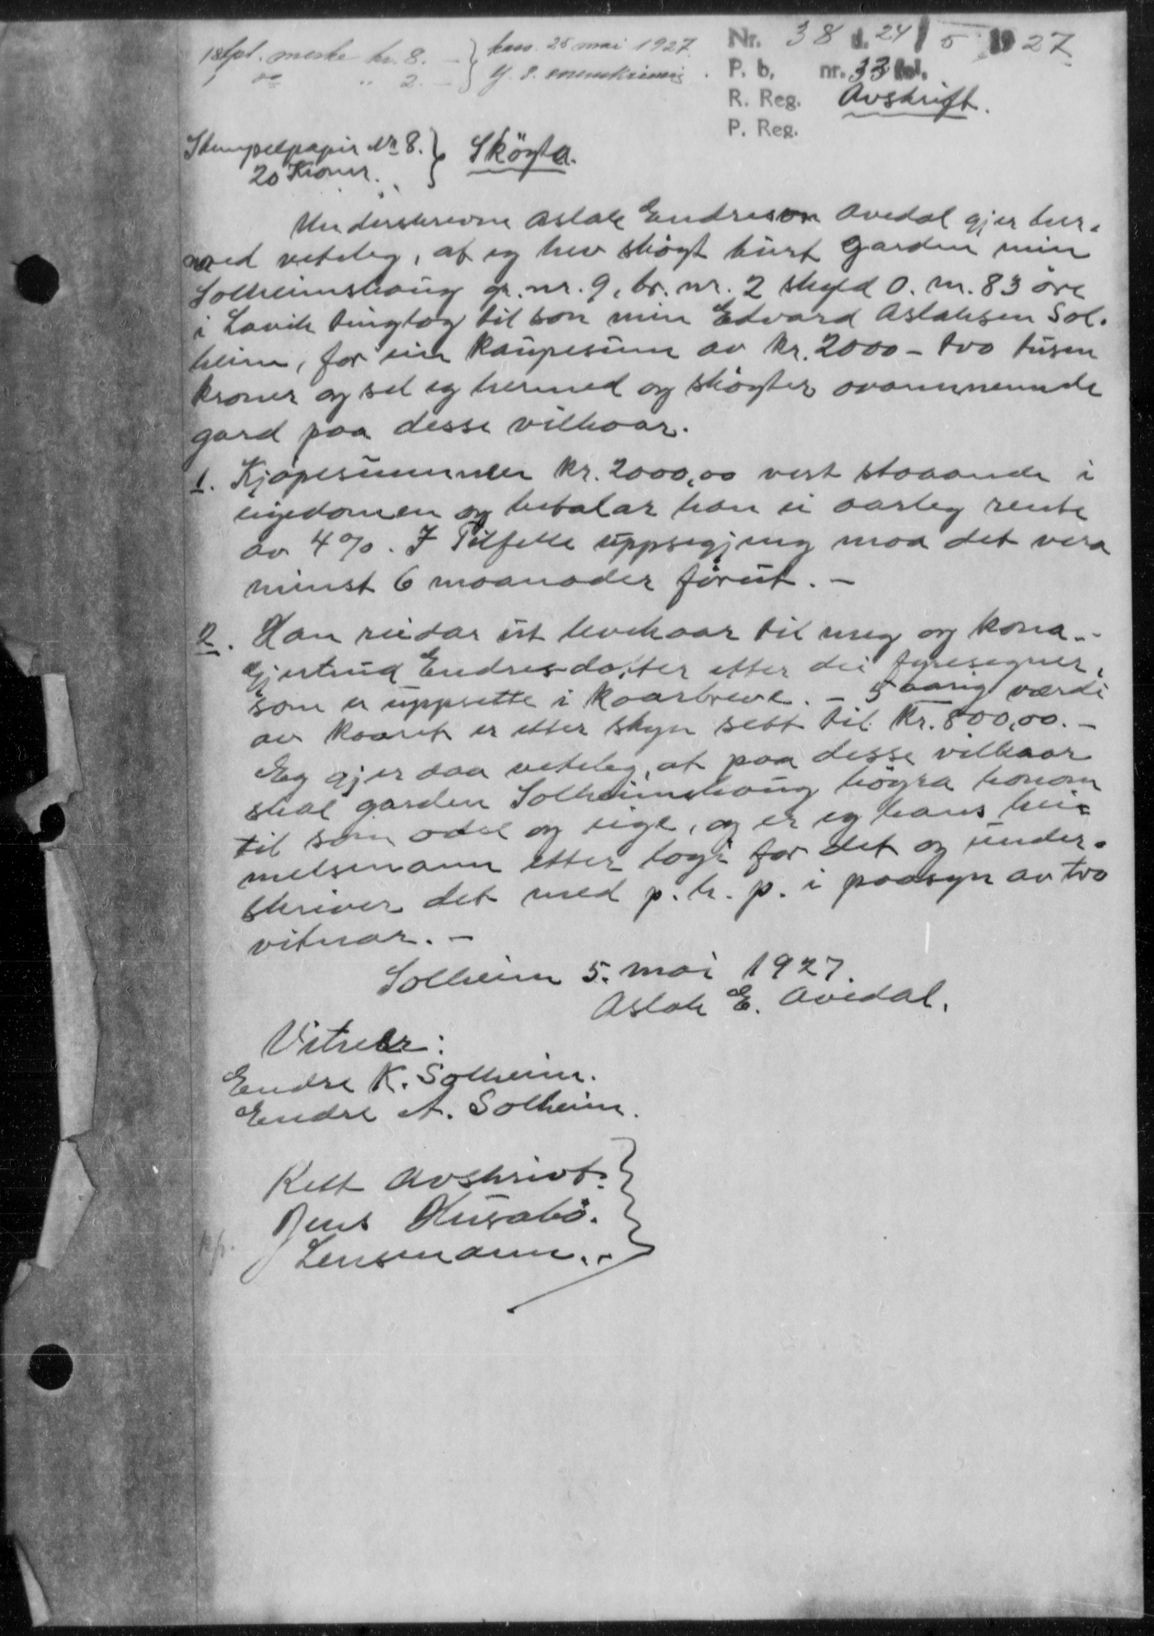 1 stpl. merke kr. 8. — } kass. 25 mai 1927
1 do „ 2. — }
Nr. 38 d. 24/5 1927
P. b. nr. 33 fol.
R. Reg. Avskrift.
P. Reg.
Stempelpapir Nr 8. } Skögte.
20 Kroner.
Underskrevne Aslak Endreson Avedal gjer her-
med veteleg, at eg hev skögt burt garden min
Solheimshaug gr. nr. 9, br. nr. 2 skyld 0. m. 83 öre
i Lavik tinglag til son min Edvard Aslaksen Sol-
heim, for ein kaupesum av kr. 2000 – tvo tusen
kroner og sel eg hermed og skögter ovannemnde
gard paa desse vilkaar.
1. Kjöpesummen kr. 2000,00 vert staaande i
eigedomen og betalar han ei aarleg rente
av 4 %. I Tilfelle uppsegjing maa det vera
minst 6 maanader förut. –
2. Han reidar ut levekaar til meg og kona –
Gjertrud Endresdotter etter dei fyresegner,
som er uppsette i kaarbreve. – 5 aarig værdi
av kaaret er etter skyn sett til kr. 800,00. –
Eg gjer daa veteleg, at paa desse vilkaar
skal garden Solheimshaug höyra honom
til som odel og eige, og er eg hans hei-
melsmann etter logi for det og under-
skriver det med p. h. p. i paasyn av tvo
vitnar. –
Solheim 5. mai 1927.
Aslak E. Avedal.
Vitner:
Endre K. Solheim.
Endre A. Solheim.
Rett Avskrivt. }
Jens Husabö.
Lensmann. –